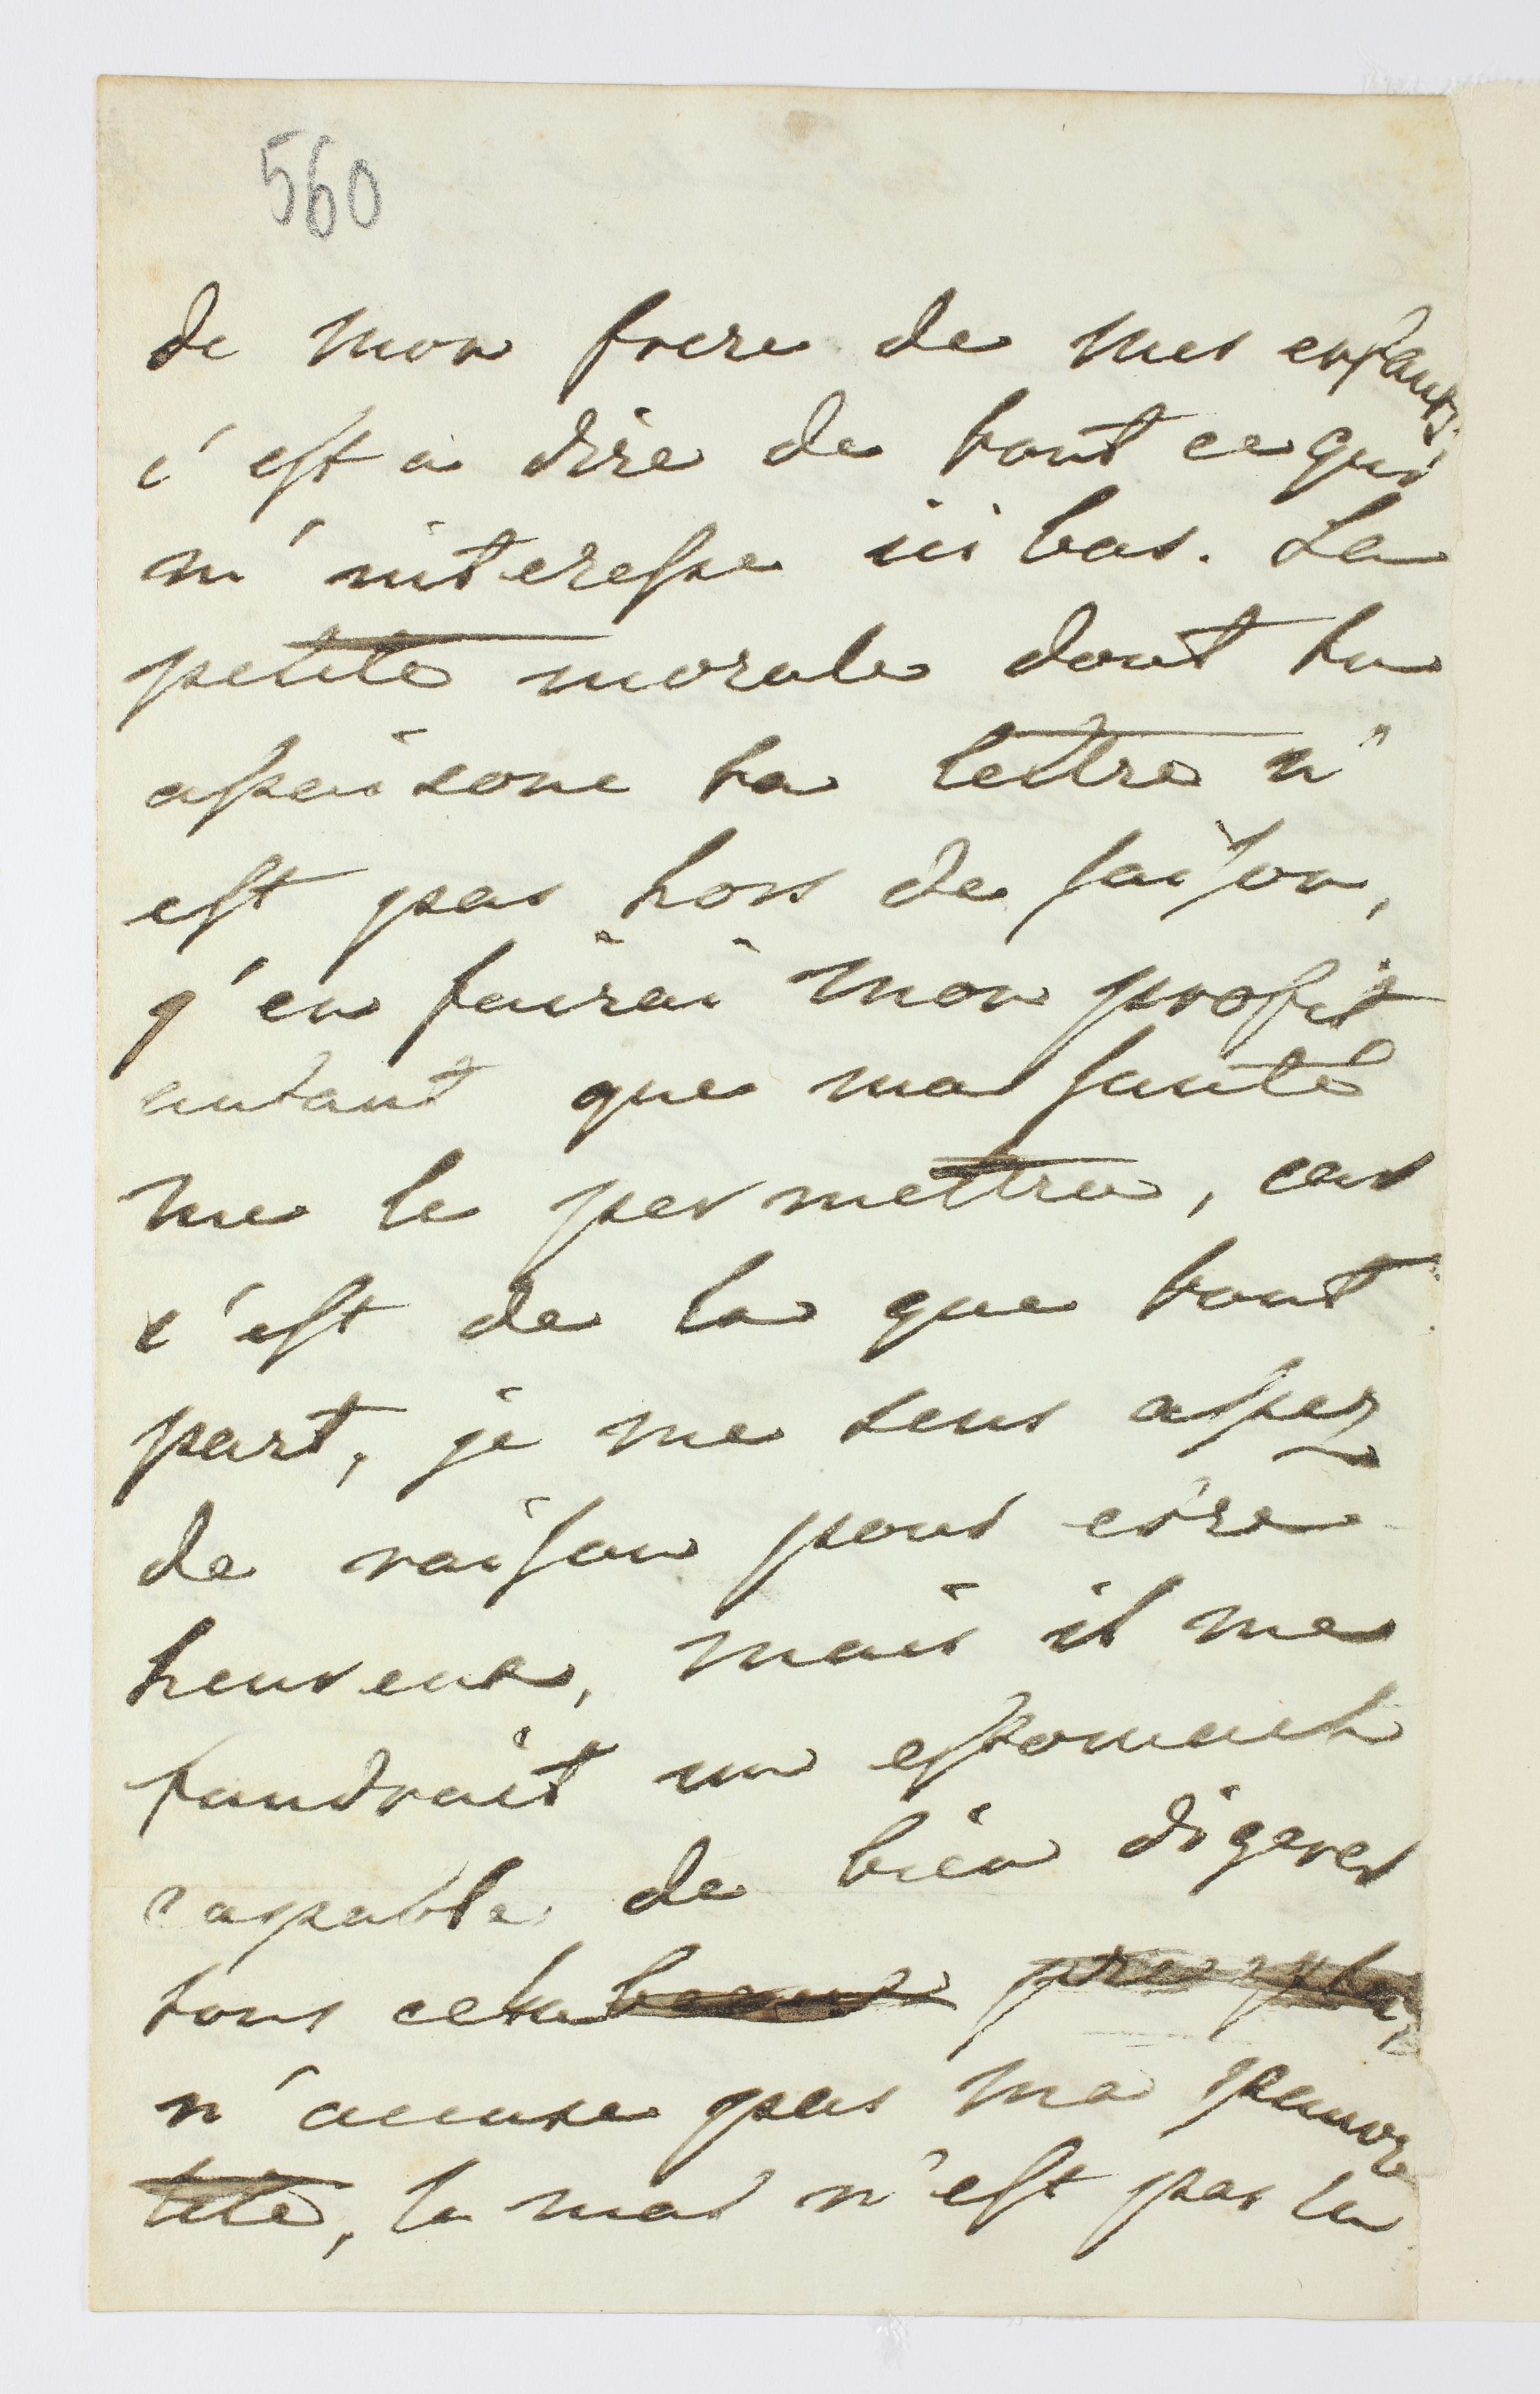 560
de mon frere de mes enfants,
c'est a dire de tout ce qui
m'interesse ici bas. La
petite morale dont tu
assaisone ta lettre n'
est pas hors de saison,
j'en fairai mon profit
autant que ma santé
me le permettra, car
c'est de la que tout
part, je me sens assez
de raison pour etre
heureux, mais il me
faudrait un estomach
capable de bien digerer
tous cela beaux preceptes,
n'accuse pas ma pauvre
tete, le mal n'est pas la